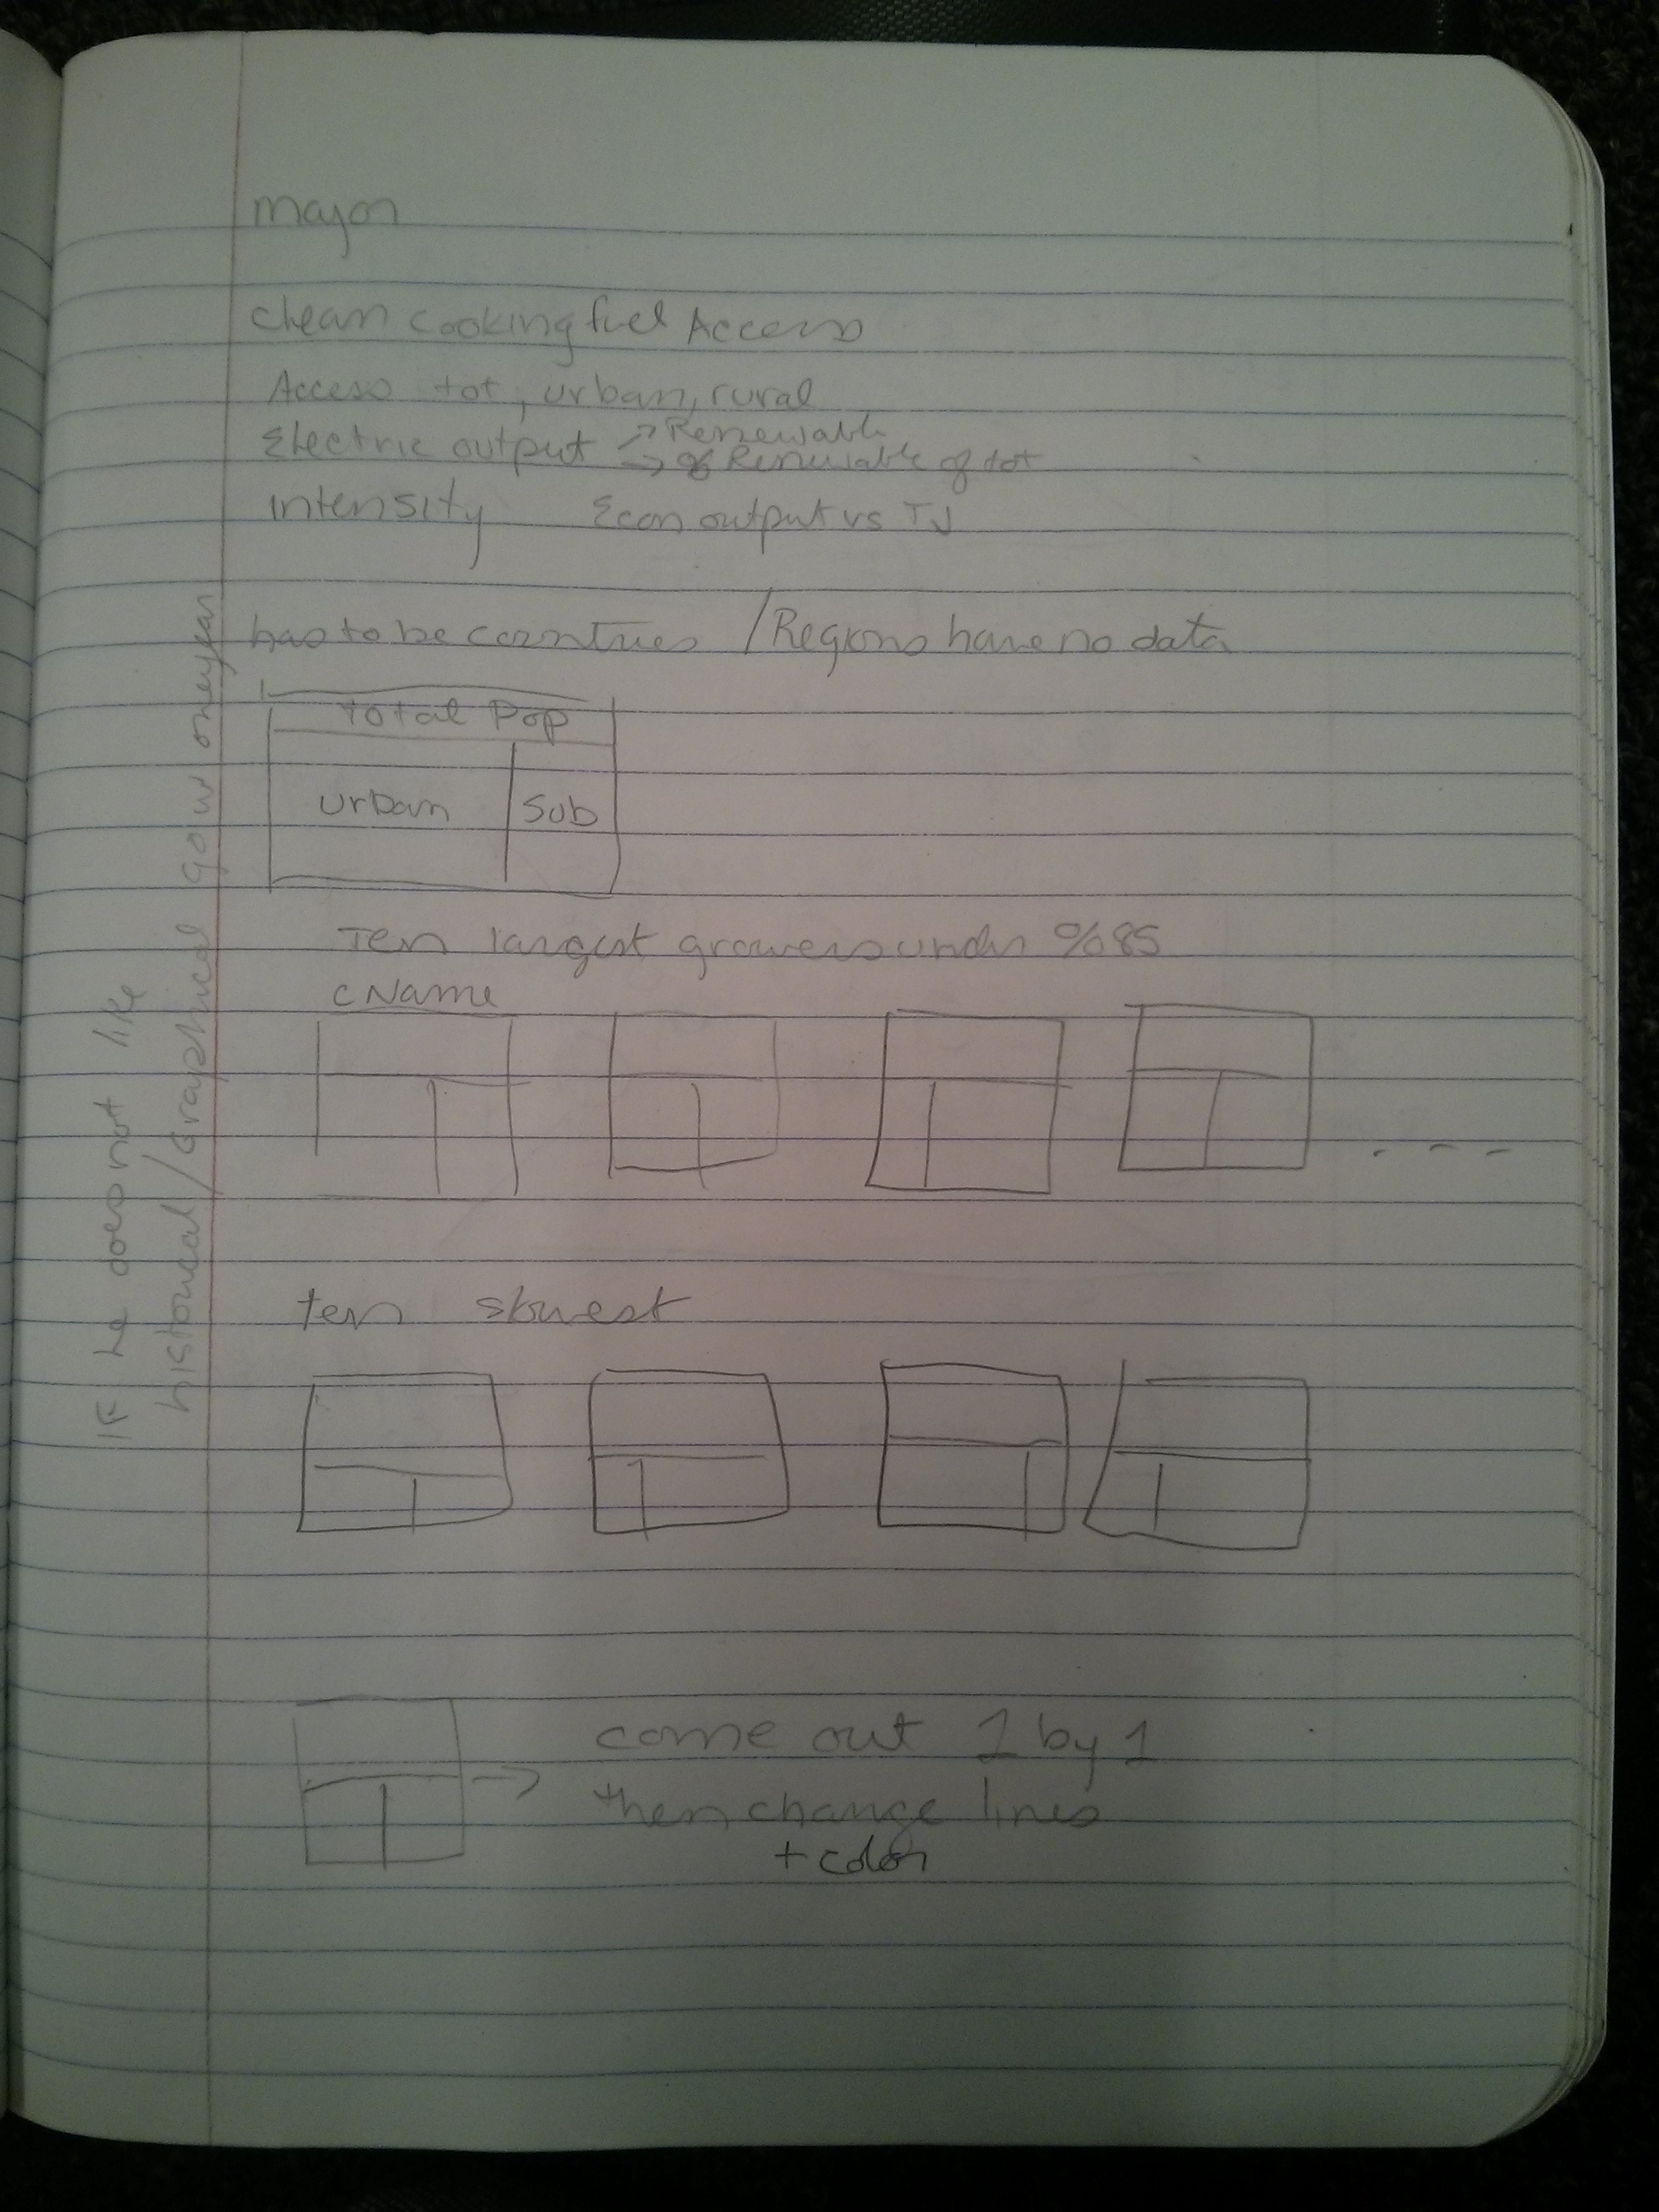 major
clean cooking fuel Access
Access tot, urban, rural
Electric output ↗ Renewable
→ % Renewable of tot
intensity Econ output vs TJ
has to be countries / Regions have no data
total Pop
urban Sub
Ten largest growers under %85
CName
- - -
ten slowest
come out 1 by 1
then change lines
+ color
IF he does not like
historical/Graphical go w one year